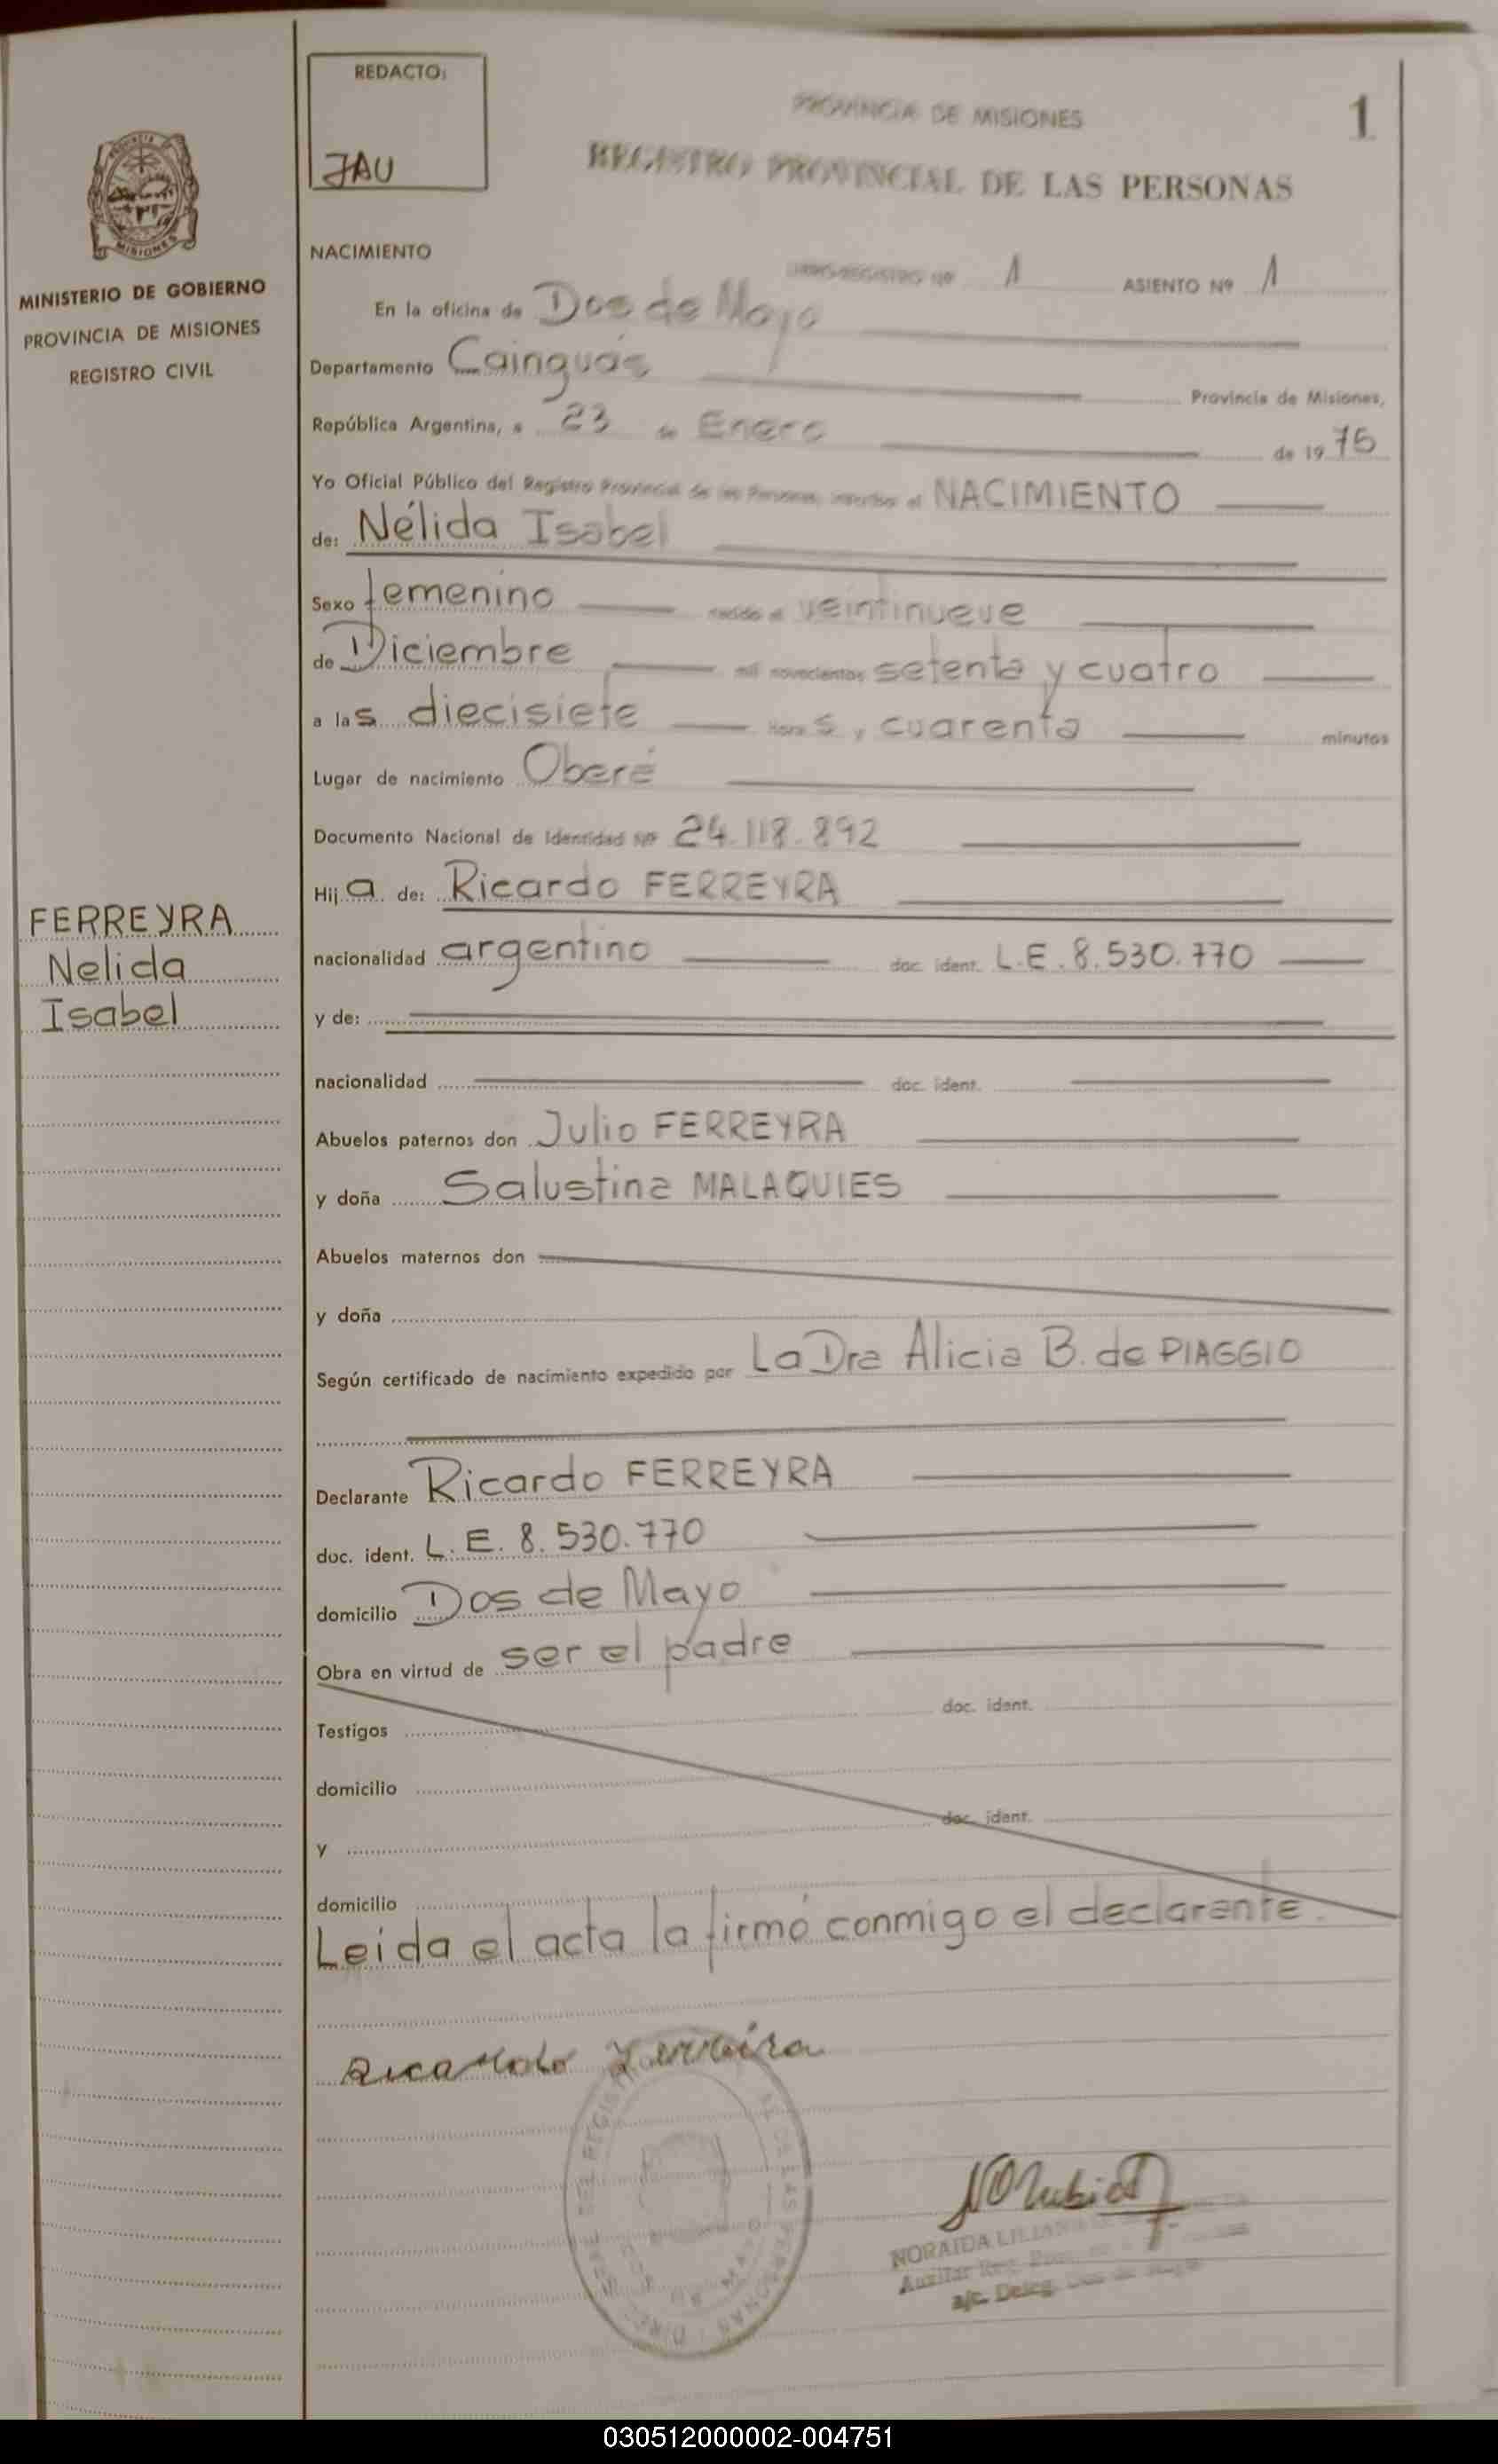 REDACTO:
JAU
PROVINCIA DE MISIONES
1
REGISTRO PROVINCIAL DE LAS PERSONAS
MISIONES
MINISTERIO DE GOBIERNO
PROVINCIA DE MISIONES
REGISTRO CIVIL
NACIMIENTO
Nº 1 ASIENTO Nº 1
En la oficina de Dos de Mayo
Departamento Cainguás Provincia de Misiones,
República Argentina, a 23 de Enero de 1975
Yo Oficial Público del Registro Provincial de las Personas, inscribo el NACIMIENTO
de: Nélida Isabel
Sexo femenino nacido el veintinueve
de Diciembre mil novecientos setenta y cuatro
a las diecisiete horas y cuarenta minutos
Lugar de nacimiento Oberé
Documento Nacional de Identidad Nº 24.118.892
Hija de: Ricardo FERREYRA
FERREYRA
Nelida
Isabel
nacionalidad argentino doc. ident. L.E. 8.530.770
y de:
nacionalidad doc. ident.
Abuelos paternos don Julio FERREYRA
y doña Salustina MALAQUIES
Abuelos maternos don
y doña
Según certificado de nacimiento expedido por La Dra Alicia B. de PIAGGIO
Declarante Ricardo FERREYRA
doc. ident. L.E. 8.530.770
domicilio Dos de Mayo
Obra en virtud de ser el padre
doc. ident.
Testigos
domicilio
doc. ident.
y
domicilio
Leida el acta la firmó conmigo el declarante.
Ricardo Ferreira
NORAIDA LILIANA
Auxiliar Reg.
a/c. Deleg. Dos de Mayo
030512000002-004751